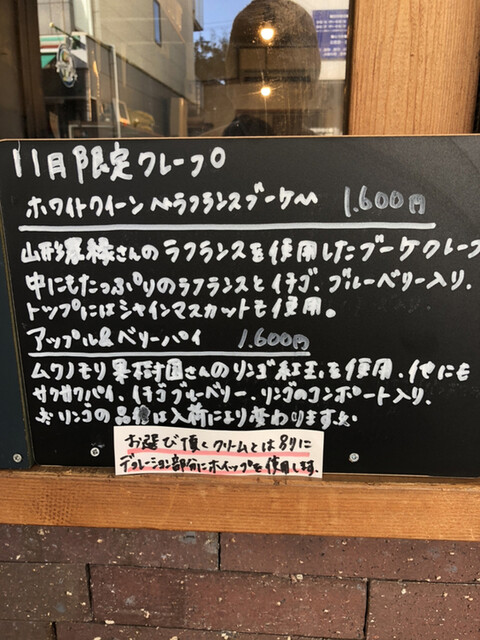 11月限定クレープ
ホワイトクイーン 〜ラフランスブーケ〜 1.600円
山形果縁さんのラフランスを使用したブーケクレープ
中にもたっぷりのラフランスとイチゴ、ブルーベリー入り、
トップにはシャインマスカットも使用。
アップル&ベリーパイ 1.600円
ムクノモリ果樹園さんのリンゴ紅玉を使用、他にも
サクサクパイ、イチゴブルーベリー、リンゴのコンポート入り、
※リンゴの品種は入荷により変わります※
お選び頂くクリームとは別に
デコレーション部分にホイップを使用します。